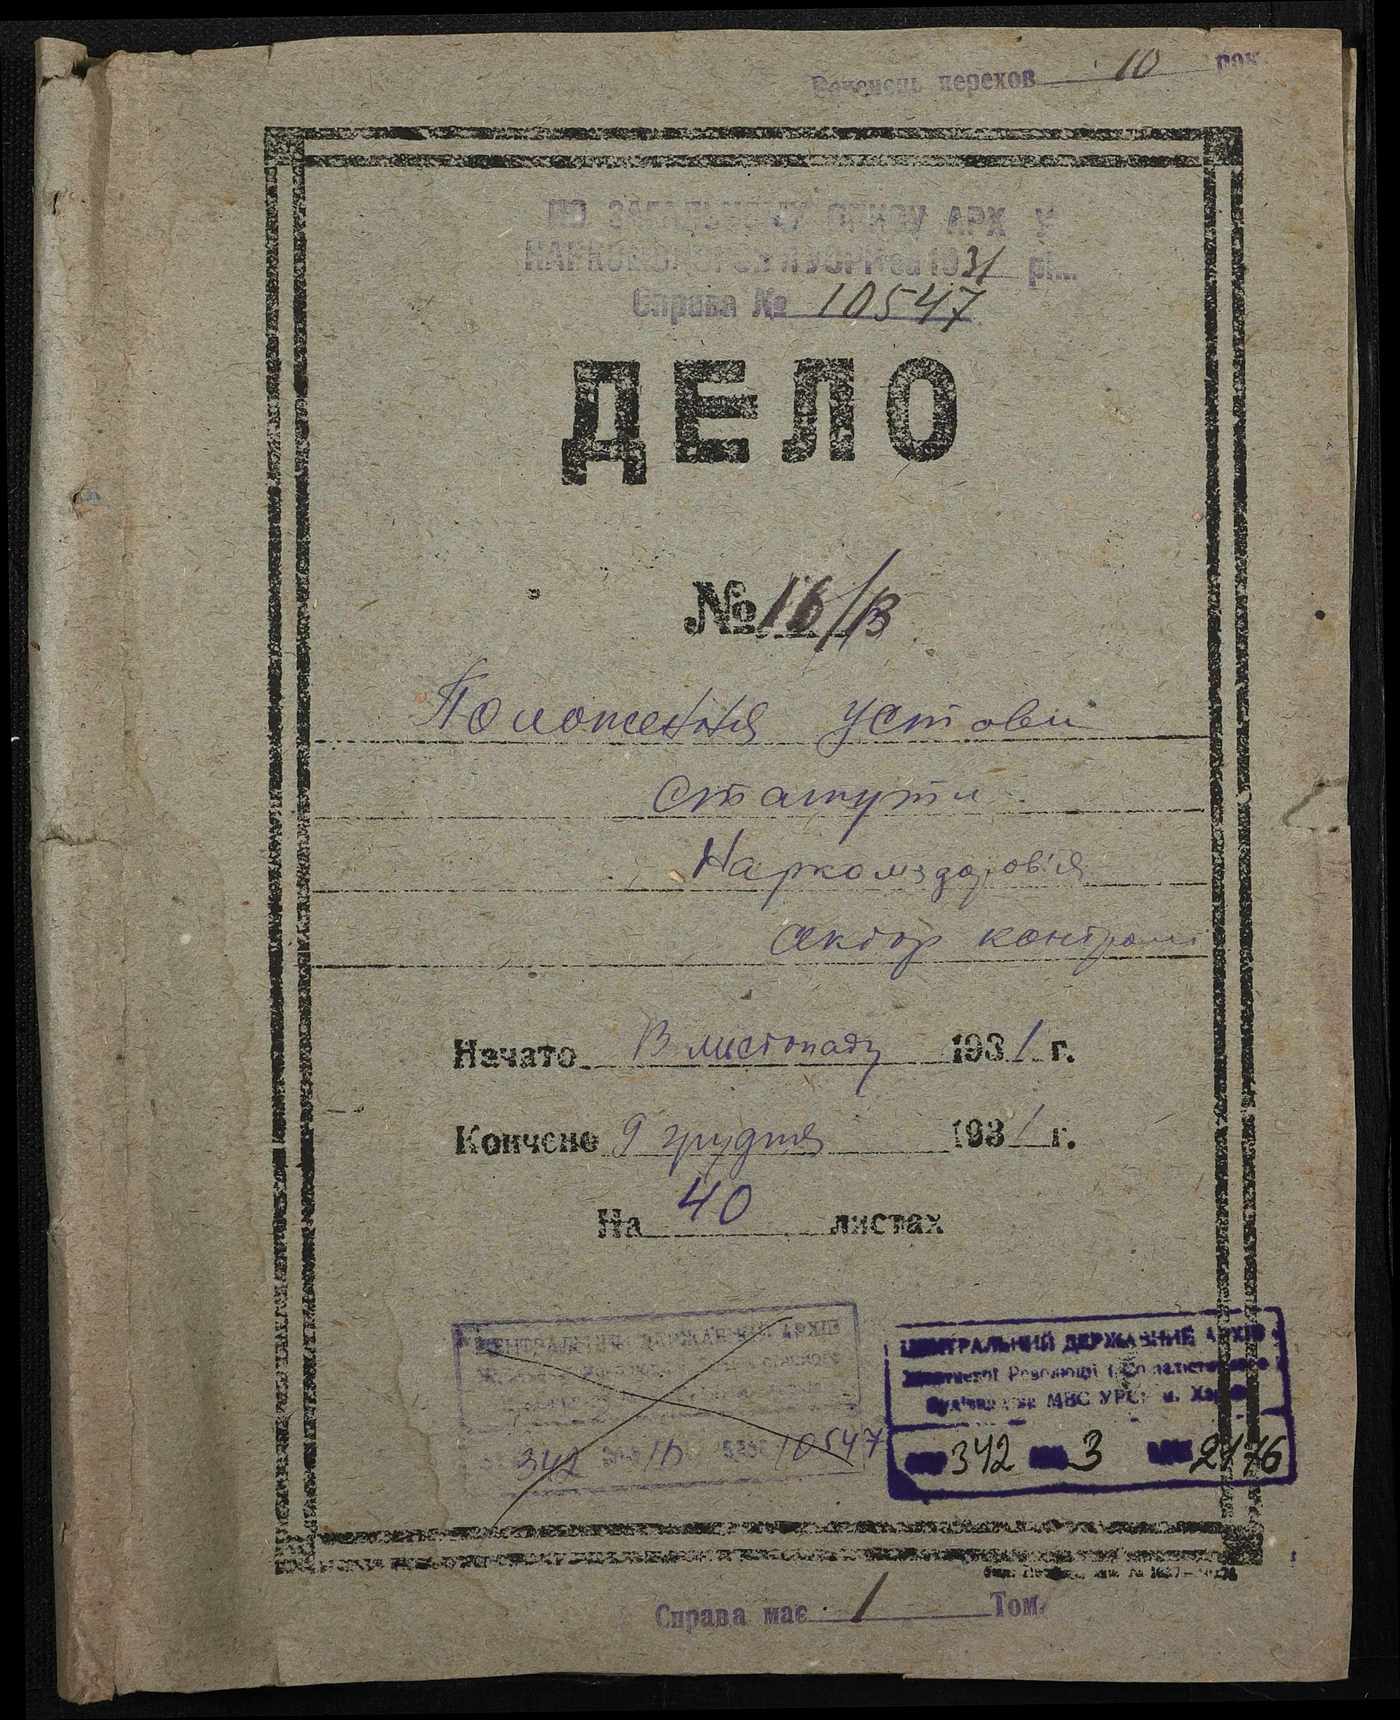 Реченець перехов 10 рок
ПО ЗАГАЛЬНОМУ ОПИСУ АРХ У
НАРКОМЗДОРОВ'Я УСРР за 1931 рі...
Справа № 10547
ДЕЛО
№ 16/В
Положення устави
статути
Наркомздоров'я
сектор контролі
Начато В листопаду 1931 г.
Кончено 9 грудня 1931 г.
На 40 листах
ЦЕНТРАЛЬНИЙ ДЕРЖАВНИЙ АРХІВ
342 10547
ЦЕНТРАЛЬНИЙ ДЕРЖАВНИЙ АРХІВ
Жовтневої Революції і Соціалістичного
Будівництва МВС УРСР м. Харків
342 3 2176
Справа має 1 Том.